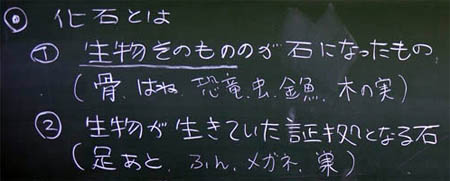 ◎ 化石とは
① 生物そのもののが石になったもの
(骨、はね、恐竜、虫、金魚、木の実)
② 生物が生きていた証拠となる石
(足あと、ふん、メガネ、巣)